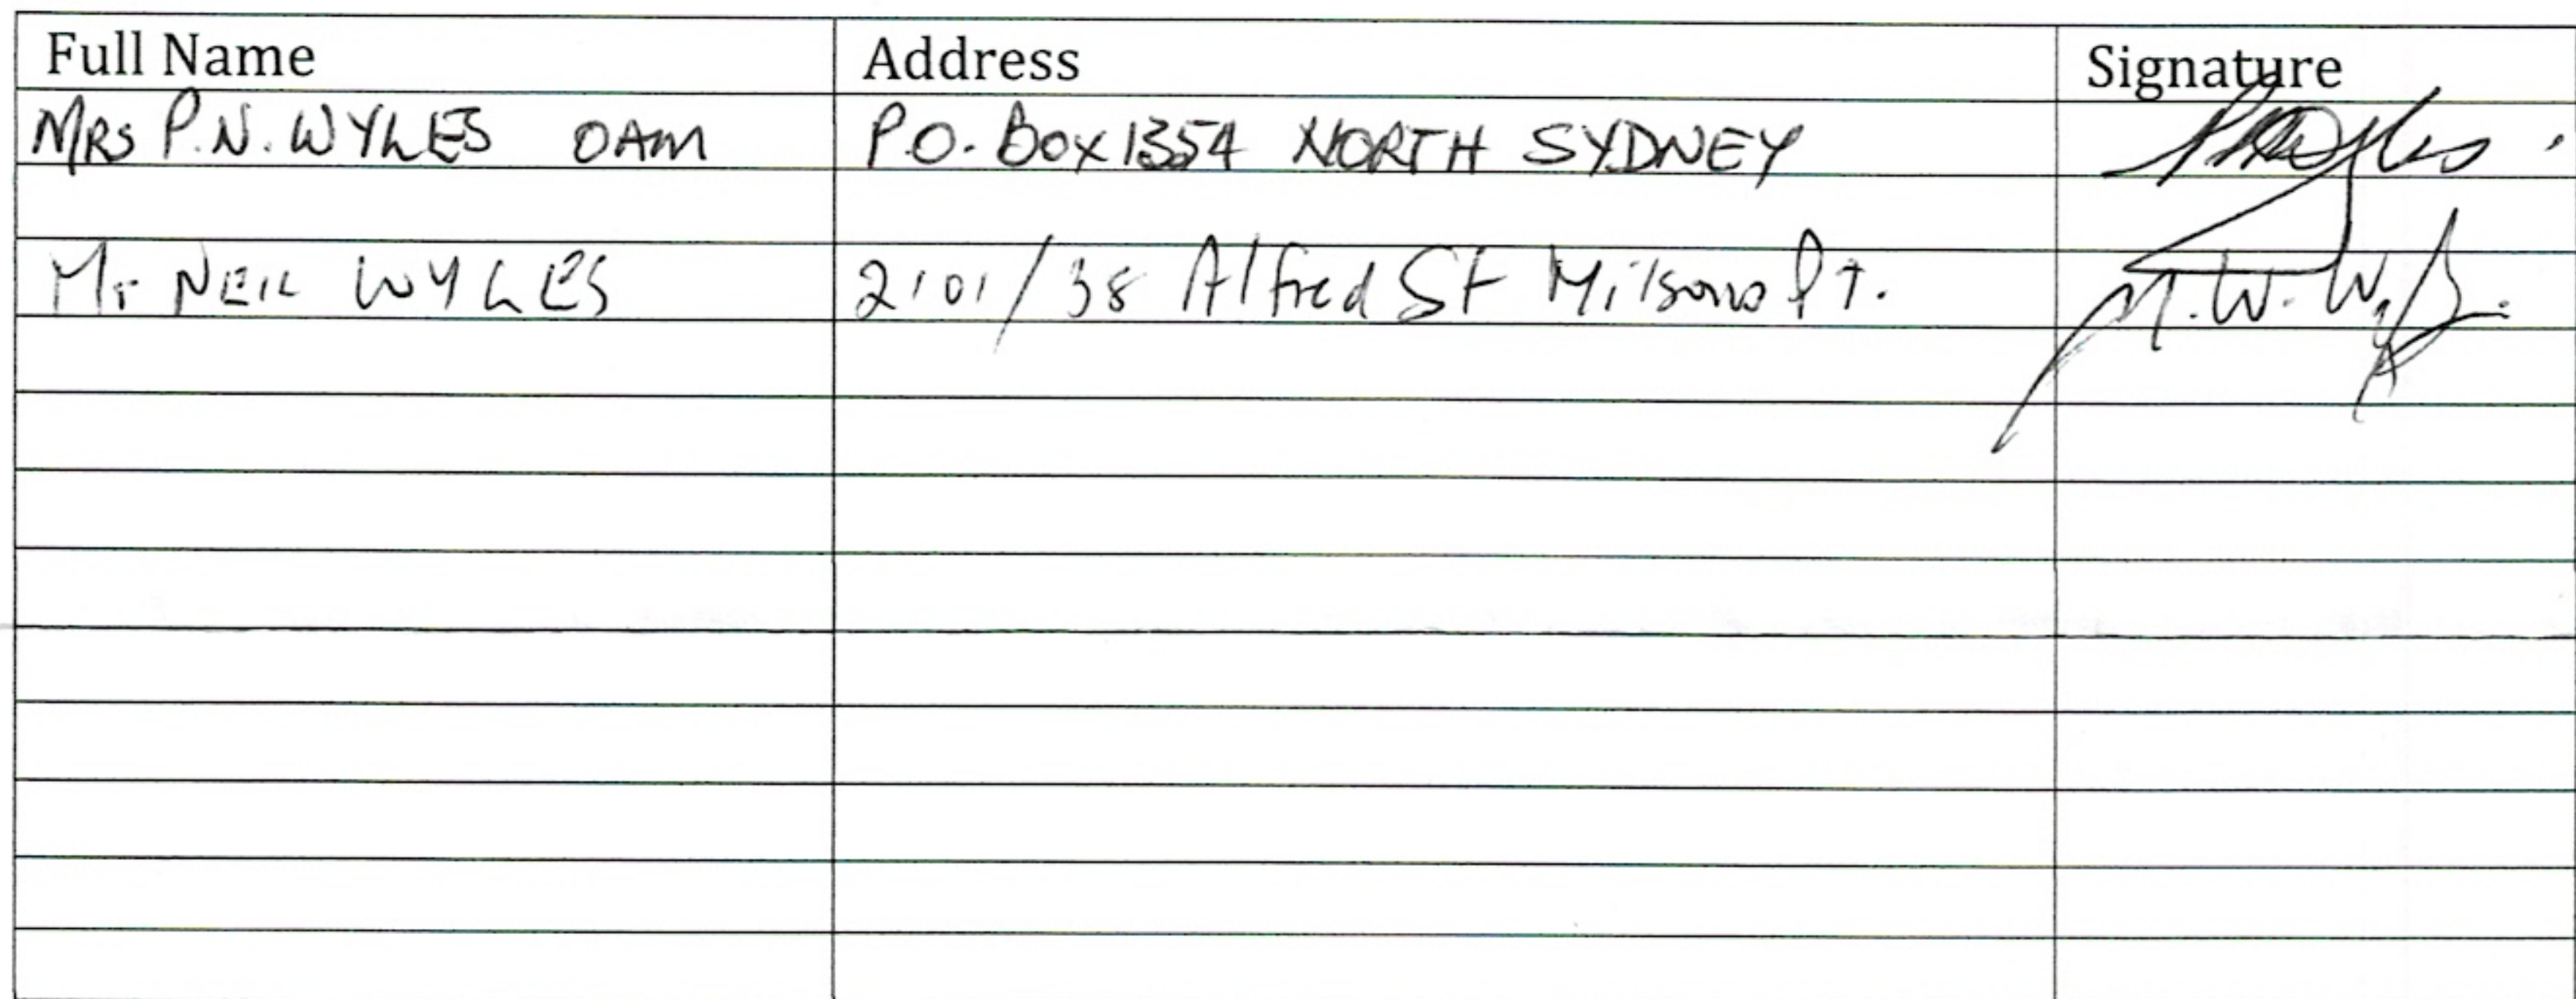 Full Name Address Signature
MRS P.N. WYLES OAM P.O. Box 1354 NORTH SYDNEY
Mr NEIL WYLES 2101/38 Alfred St Milsons Pt. N.W. Wyles